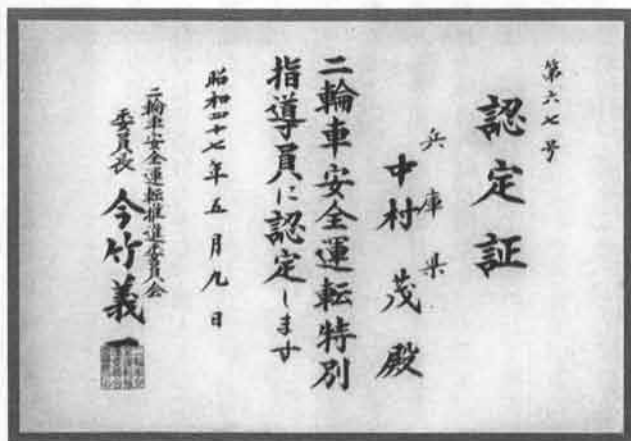 第六七号
認定証
兵庫県
中村茂殿
二輪車安全運転特別
指導員に認定します
昭和四十七年五月九日
二輪車安全運転推進委員会
委員長 今竹義一